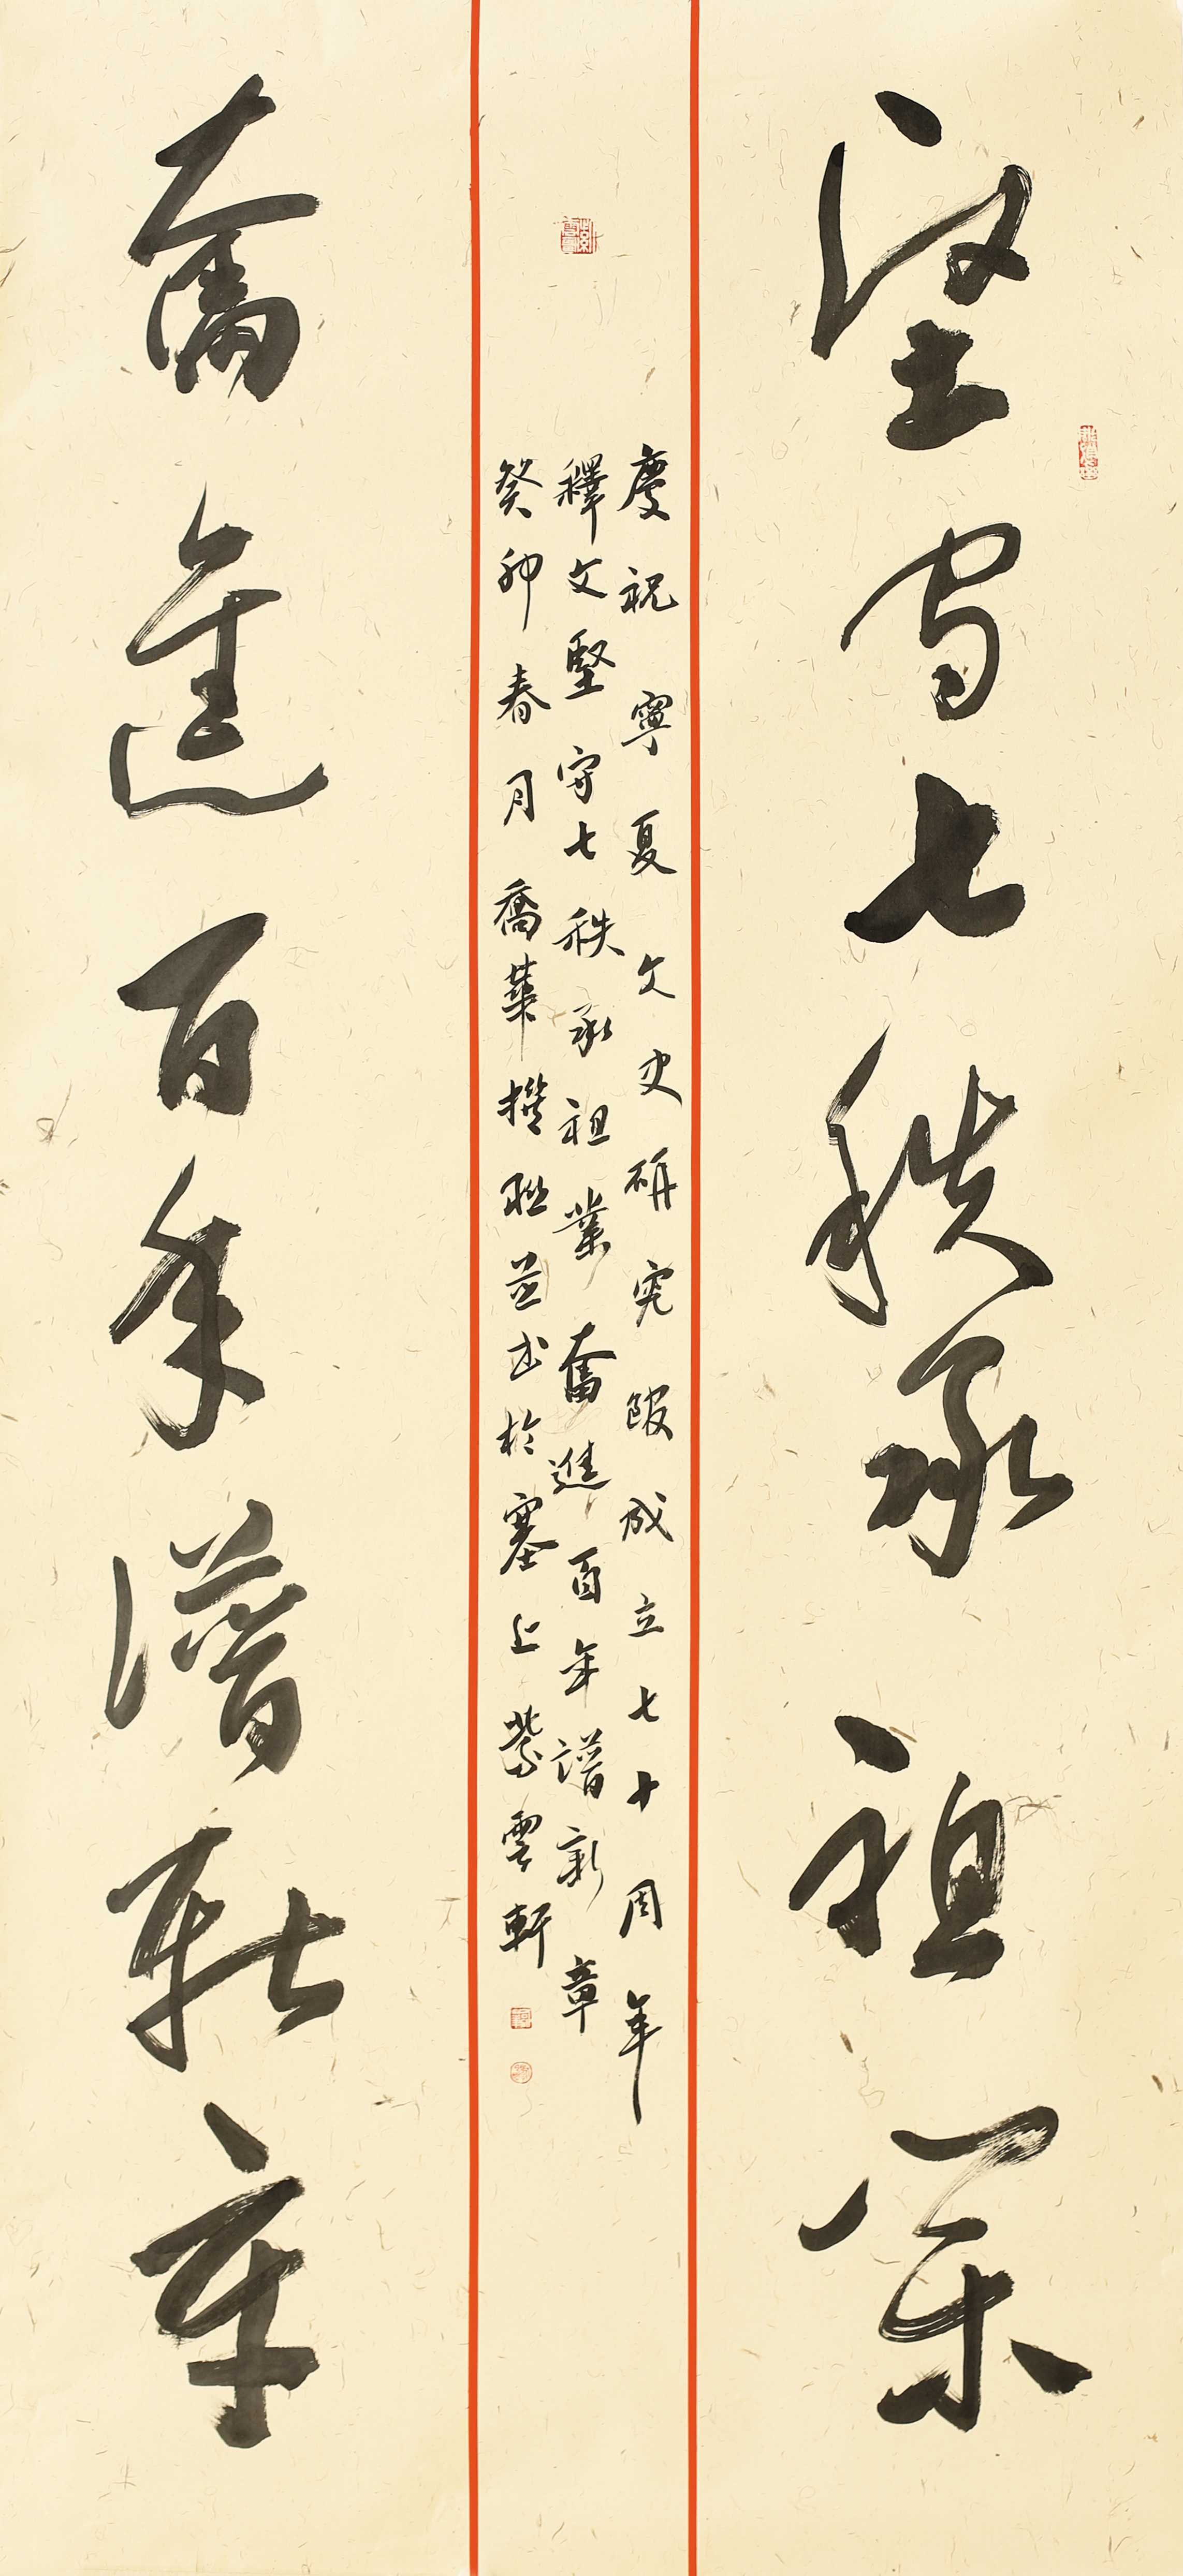 堅守七秩承祖業
慶祝寧夏文史研究館成立七十周年
釋文堅守七秩承祖業奮進百年譜新章
癸卯春月喬華撰聯並书於塞上紫雲軒
奮進百年譜新章